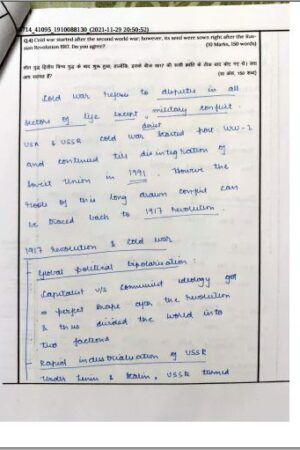 714_41095_1910088130 (2021-11-29 20:50:52)
Q.4) Cold war started after the second world war; however, its seed were sown right after the Rus-
sian Revolution 1917. Do you agree? (10 Marks, 150 words)
शीत युद्ध द्वितीय विश्व युद्ध के बाद शुरू हुआ, हालाँकि, इसके बीज 1917 की रूसी क्रांति के ठीक बाद बोए गए थे। क्या
आप सहमत हैं? (10 अंक, 150 शब्द)
Cold war refers to disputes in all
sectors of life except direct military conflict.
USA & USSR cold war started post WW-2
and continued till disintegration of
Soviet Union in 1991. However the
roots of this long drawn conflict can
be traced back to 1917 revolution.
1917 revolution & cold war
- Global political bipolarisation:
Capitalist v/s Communist ideology got
a perfect shape after the revolution
& thus divided the world into
two factions
- Rapid industrialisation of USSR
Under Lenin & Stalin, USSR turned